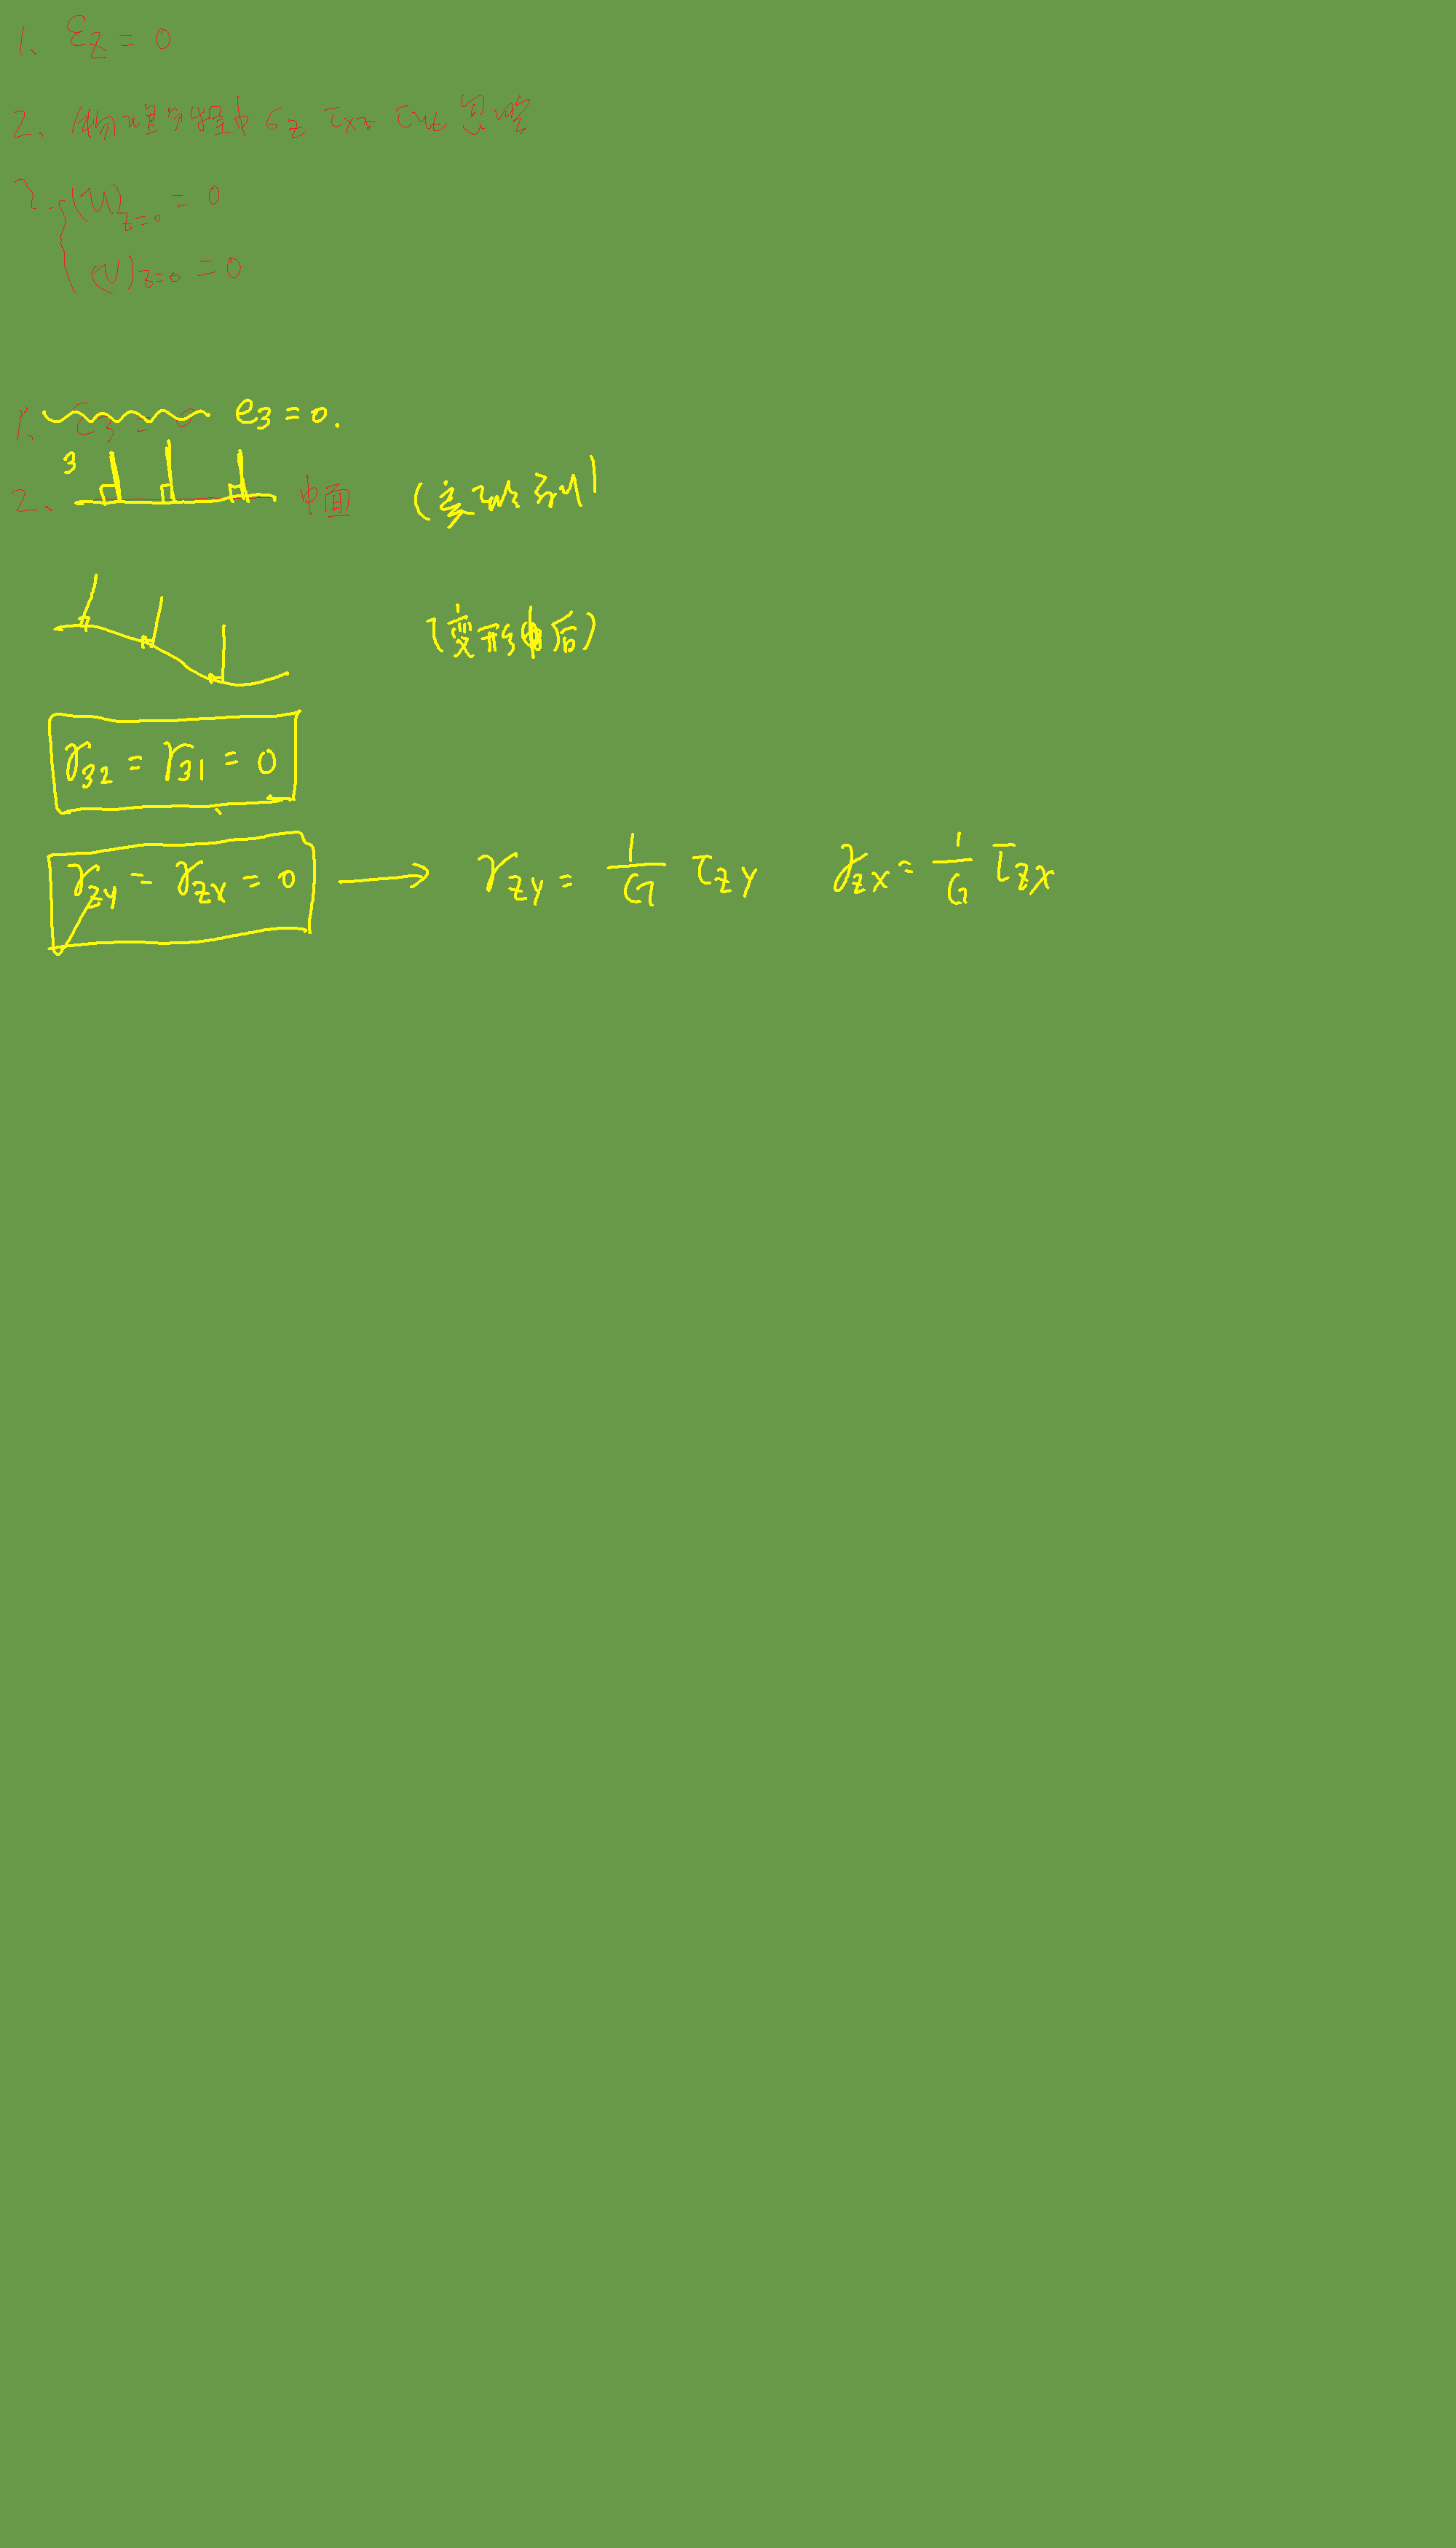 1、εz = 0
2、物理方程中 σz τxz τyz 忽略
3、(u)z=0 = 0
(v)z=0 = 0
1、 e3 = 0.
3
2、 中面 (变形前)
(变形后)
γ32 = γ31 = 0
γzy = γzx = 0 → γzy = 1/G τzy γzx = 1/G τzx